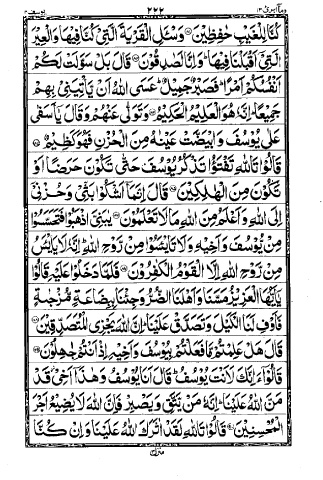 وما ابرئ ١٣ ٢٢٢ يوسف ١٢
كُنَّا لِلْغَيْبِ حٰفِظِيْنَ وَسْئَلِ الْقَرْيَةَ الَّتِيْ كُنَّا فِيْهَا وَالْعِيْرَ
الَّتِيْٓ اَقْبَلْنَا فِيْهَا وَاِنَّا لَصٰدِقُوْنَ قَالَ بَلْ سَوَّلَتْ لَكُمْ
اَنْفُسُكُمْ اَمْرًا فَصَبْرٌ جَمِيْلٌ عَسَى اللّٰهُ اَنْ يَّاْتِيَنِيْ بِهِمْ
جَمِيْعًا اِنَّهٗ هُوَ الْعَلِيْمُ الْحَكِيْمُ وَتَوَلّٰى عَنْهُمْ وَقَالَ يٰٓاَسَفٰى
عَلٰى يُوْسُفَ وَابْيَضَّتْ عَيْنٰهُ مِنَ الْحُزْنِ فَهُوَ كَظِيْمٌ
قَالُوْا تَاللّٰهِ تَفْتَؤُا تَذْكُرُ يُوْسُفَ حَتّٰى تَكُوْنَ حَرَضًا اَوْ
تَكُوْنَ مِنَ الْهٰلِكِيْنَ قَالَ اِنَّمَآ اَشْكُوْا بَثِّيْ وَحُزْنِيْٓ
اِلَى اللّٰهِ وَاَعْلَمُ مِنَ اللّٰهِ مَا لَا تَعْلَمُوْنَ يٰبَنِيَّ اذْهَبُوْا فَتَحَسَّسُوْا
مِنْ يُّوْسُفَ وَاَخِيْهِ وَلَا تَايْئَسُوْا مِنْ رَّوْحِ اللّٰهِ اِنَّهٗ لَا يَايْئَسُ
مِنْ رَّوْحِ اللّٰهِ اِلَّا الْقَوْمُ الْكٰفِرُوْنَ فَلَمَّا دَخَلُوْا عَلَيْهِ قَالُوْا
يٰٓاَيُّهَا الْعَزِيْزُ مَسَّنَا وَاَهْلَنَا الضُّرُّ وَجِئْنَا بِبِضَاعَةٍ مُّزْجٰىةٍ
فَاَوْفِ لَنَا الْكَيْلَ وَتَصَدَّقْ عَلَيْنَا اِنَّ اللّٰهَ يَجْزِي الْمُتَصَدِّقِيْنَ
قَالَ هَلْ عَلِمْتُمْ مَّا فَعَلْتُمْ بِيُوْسُفَ وَاَخِيْهِ اِذْ اَنْتُمْ جٰهِلُوْنَ
قَالُوْٓا ءَاِنَّكَ لَاَنْتَ يُوْسُفُ قَالَ اَنَا يُوْسُفُ وَهٰذَآ اَخِيْ قَدْ
مَنَّ اللّٰهُ عَلَيْنَا اِنَّهٗ مَنْ يَّتَّقِ وَيَصْبِرْ فَاِنَّ اللّٰهَ لَا يُضِيْعُ اَجْرَ
الْمُحْسِنِيْنَ قَالُوْا تَاللّٰهِ لَقَدْ اٰثَرَكَ اللّٰهُ عَلَيْنَا وَاِنْ كُنَّا